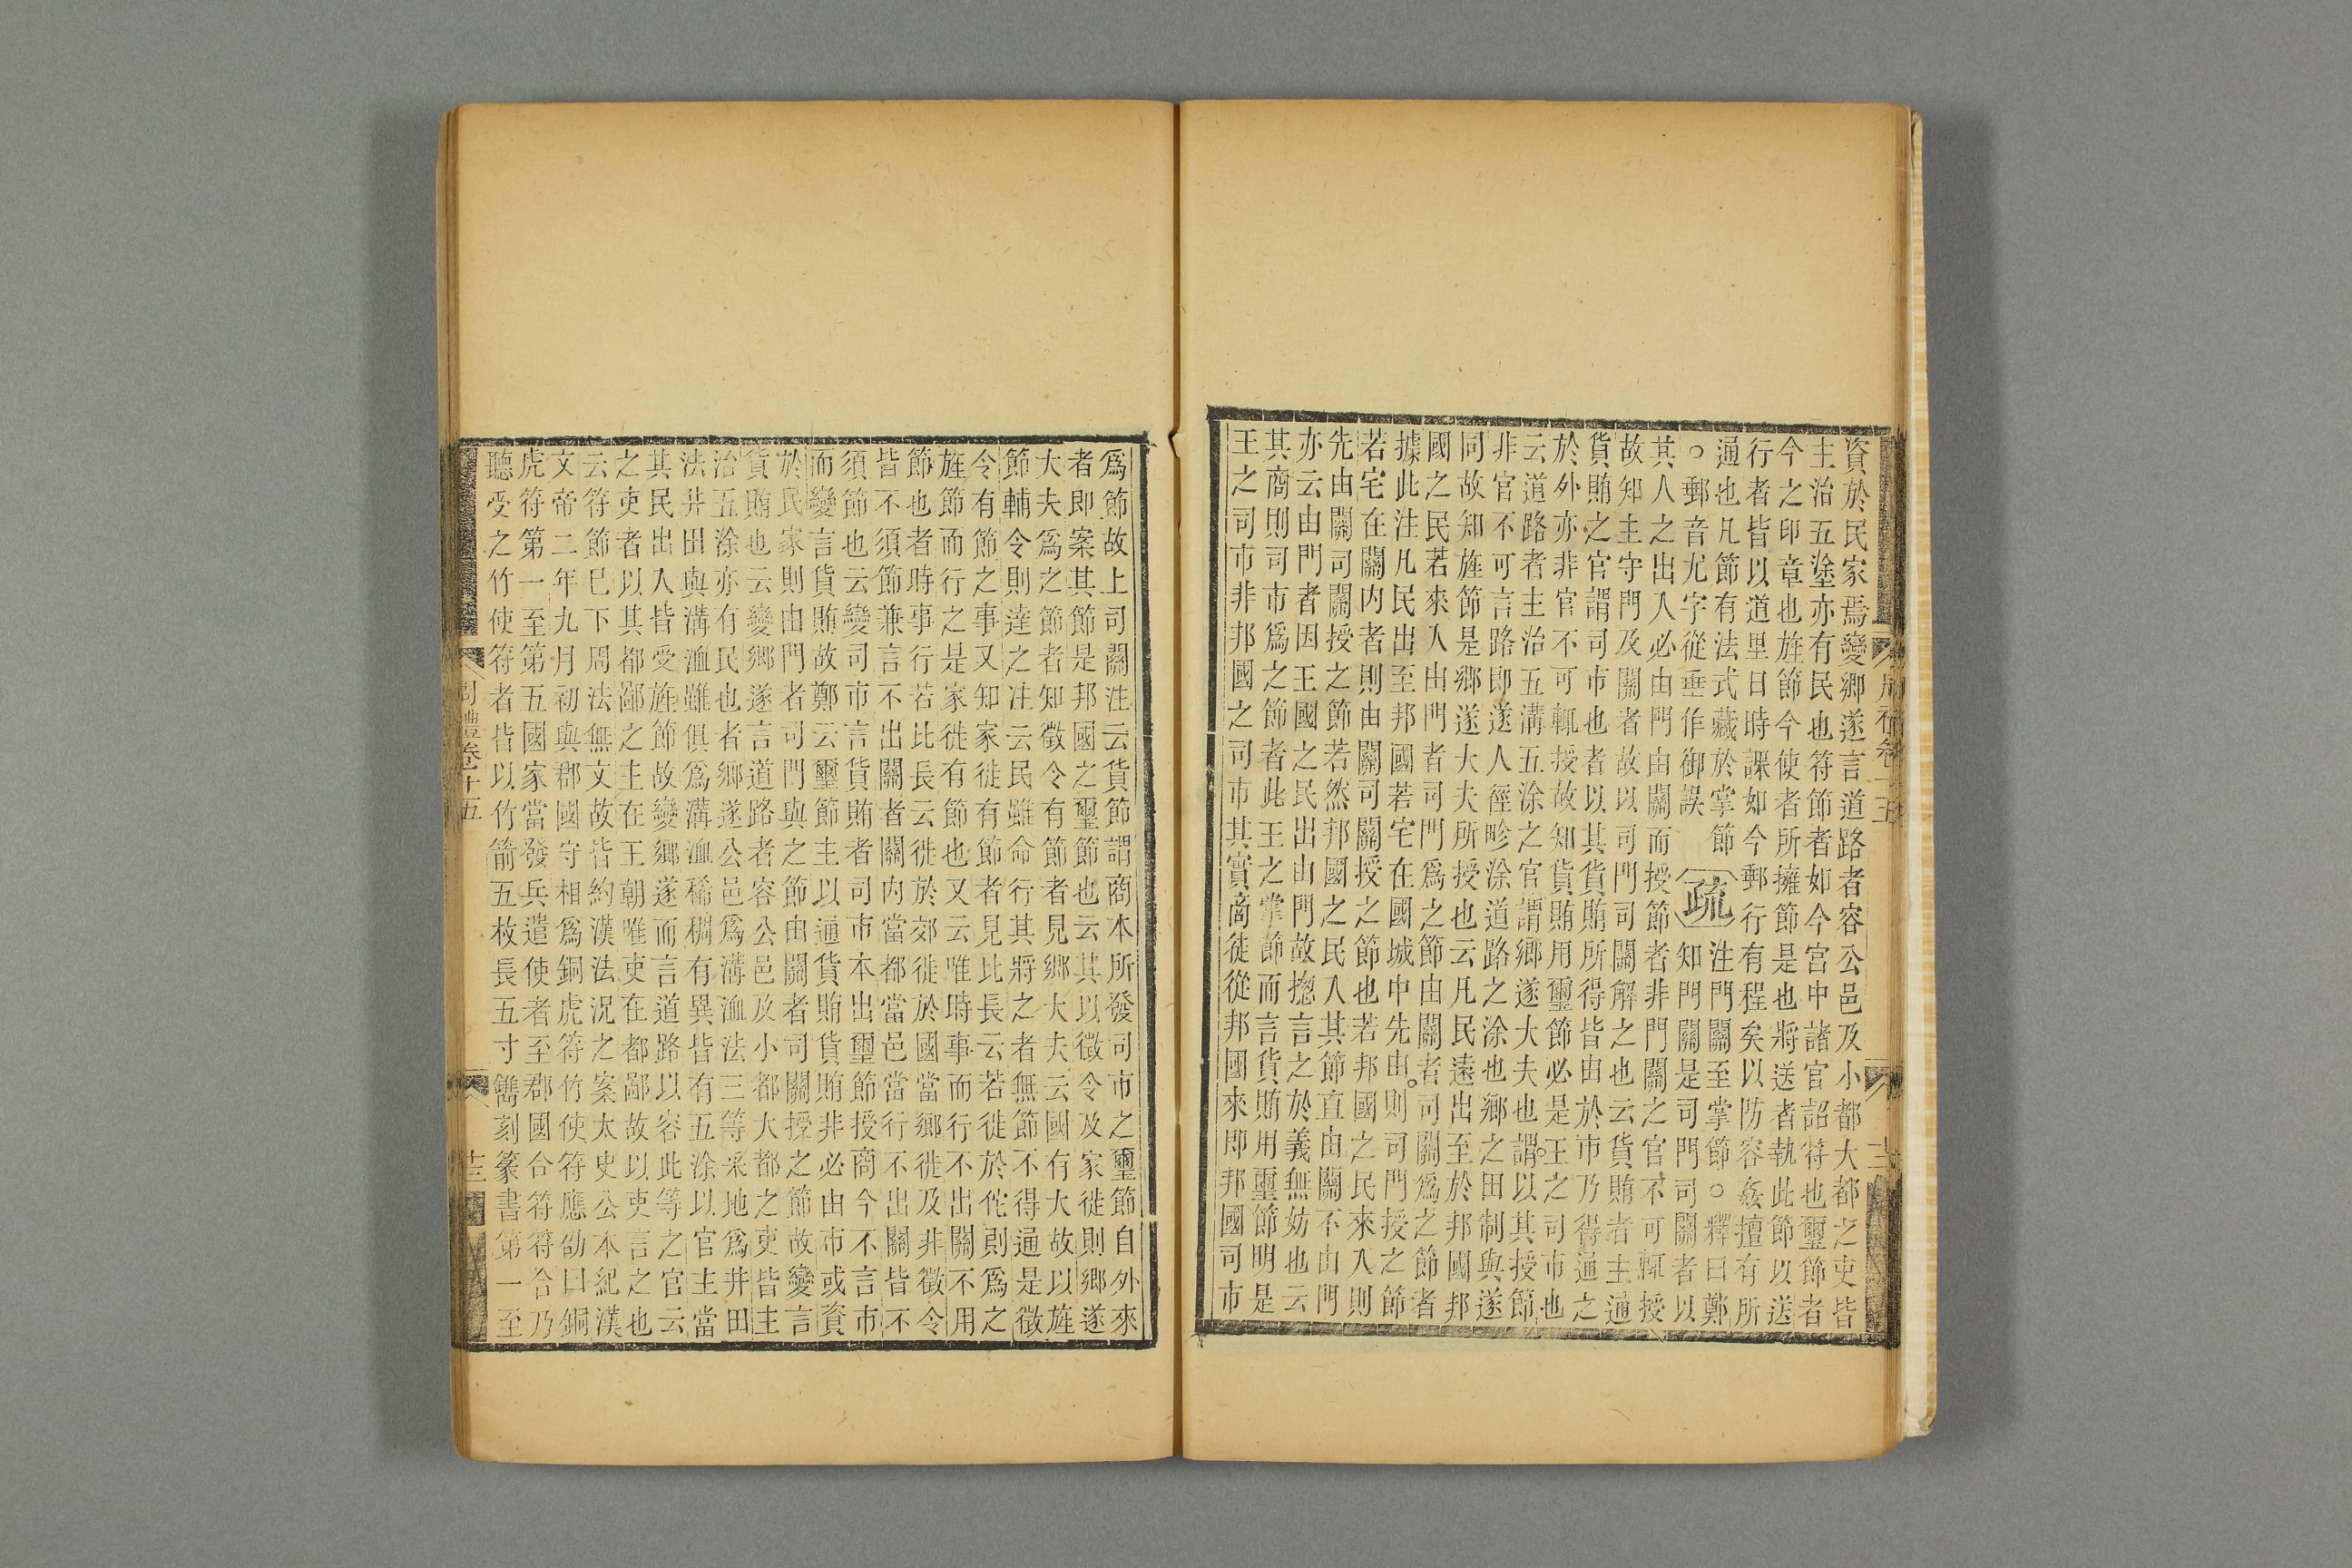 周禮卷十五
資於民家焉變鄉遂言道路者容公邑及小都大都之吏皆
主治五塗亦有民也符節者如今宮中諸官詔符也璽節者
今之印章也旌節今使者所擁節是也將送者執此節以送
行者皆以道里日時課如今郵行有程矣以防容姦擅有所
通也凡節有法式藏於掌節
○郵音尤字從垂作御誤
疏
注門關至掌節○釋曰鄭
知門關是司門司關者以
其人之出入必由門由關而授節者非門關之官不可輒授
故知主守門及關者故以司門司關解之也云貨賄者主通
貨賄之官謂司市也者以其貨賄所得皆由於市乃得通之
於外亦非官不可輒授故知貨賄用璽節必是王之司市也
云道路者主治五溝五涂之官謂鄉遂大夫也謂以其授節
非官不可言路即遂人徑畛涂道路之涂也鄉之田制與遂
同故知旌節是鄉遂大夫所授也云凡民遠出至於邦國邦
國之民若來入由門者司門爲之節由關者司關爲之節者
據此注凡民出至邦國若宅在國城中先由則司門授之節
若宅在關内者則由關司關授之節也若邦國之民來入則
先由關司關授之節若然邦國之民入其節直由關不由門
亦云由門者因王國之民出由門故摠言之於義無妨也云
其商則司市爲之節者此王之掌節而言貨賄用璽節明是
王之司市非邦國之司市其實商徒從邦國來即邦國司市
爲節故上司關注云貨節謂商本所發司市之璽節自外來
者即案其節是邦國之璽節也云其以徵令及家徙則鄉遂
大夫爲之節者知徵令有節者見鄉大夫云國有大故以旌
節輔令則達之注云民雖命行其將之者無節不得通是徵
令有節之事又知家徙有節者見比長云若徙於佗則爲之
旌節而行之是家徙有節也又云唯時事而行不出關不用
節也者時事行若比長云徙於郊徙於國當鄉徙及非徵令
皆不須節兼言不出關者關内當都當邑當行不出關皆不
須節也云變司市言貨賄者司市本出璽節授商今不言市
而變言貨賄故鄭云璽節主以通貨賄貨賄非必由市或資
於民家則由門者司門與之節由關者司關授之節故變言
貨賄也云變鄉遂言道路者容公邑及小都大都之吏皆主
治五涂亦有民也者鄉遂公邑爲溝洫法三等采地爲井田
法井田與溝洫雖俱爲溝洫稀稠有異皆有五涂以官主當
其民出入皆受旌節故變鄉遂而言道路以容此等之官云
之吏者以其都鄙之主在王朝唯吏在都鄙故以吏言之也
云符節巳下周法無文故皆約漢法況之案太史公本紀漢
文帝二年九月初與郡國守相爲銅虎符竹使符應劭曰銅
虎符第一至第五國家當發兵遣使者至郡國合符符合乃
聽受之竹使符者皆以竹箭五枚長五寸鐫刻篆書第一至
周禮卷十五
十三